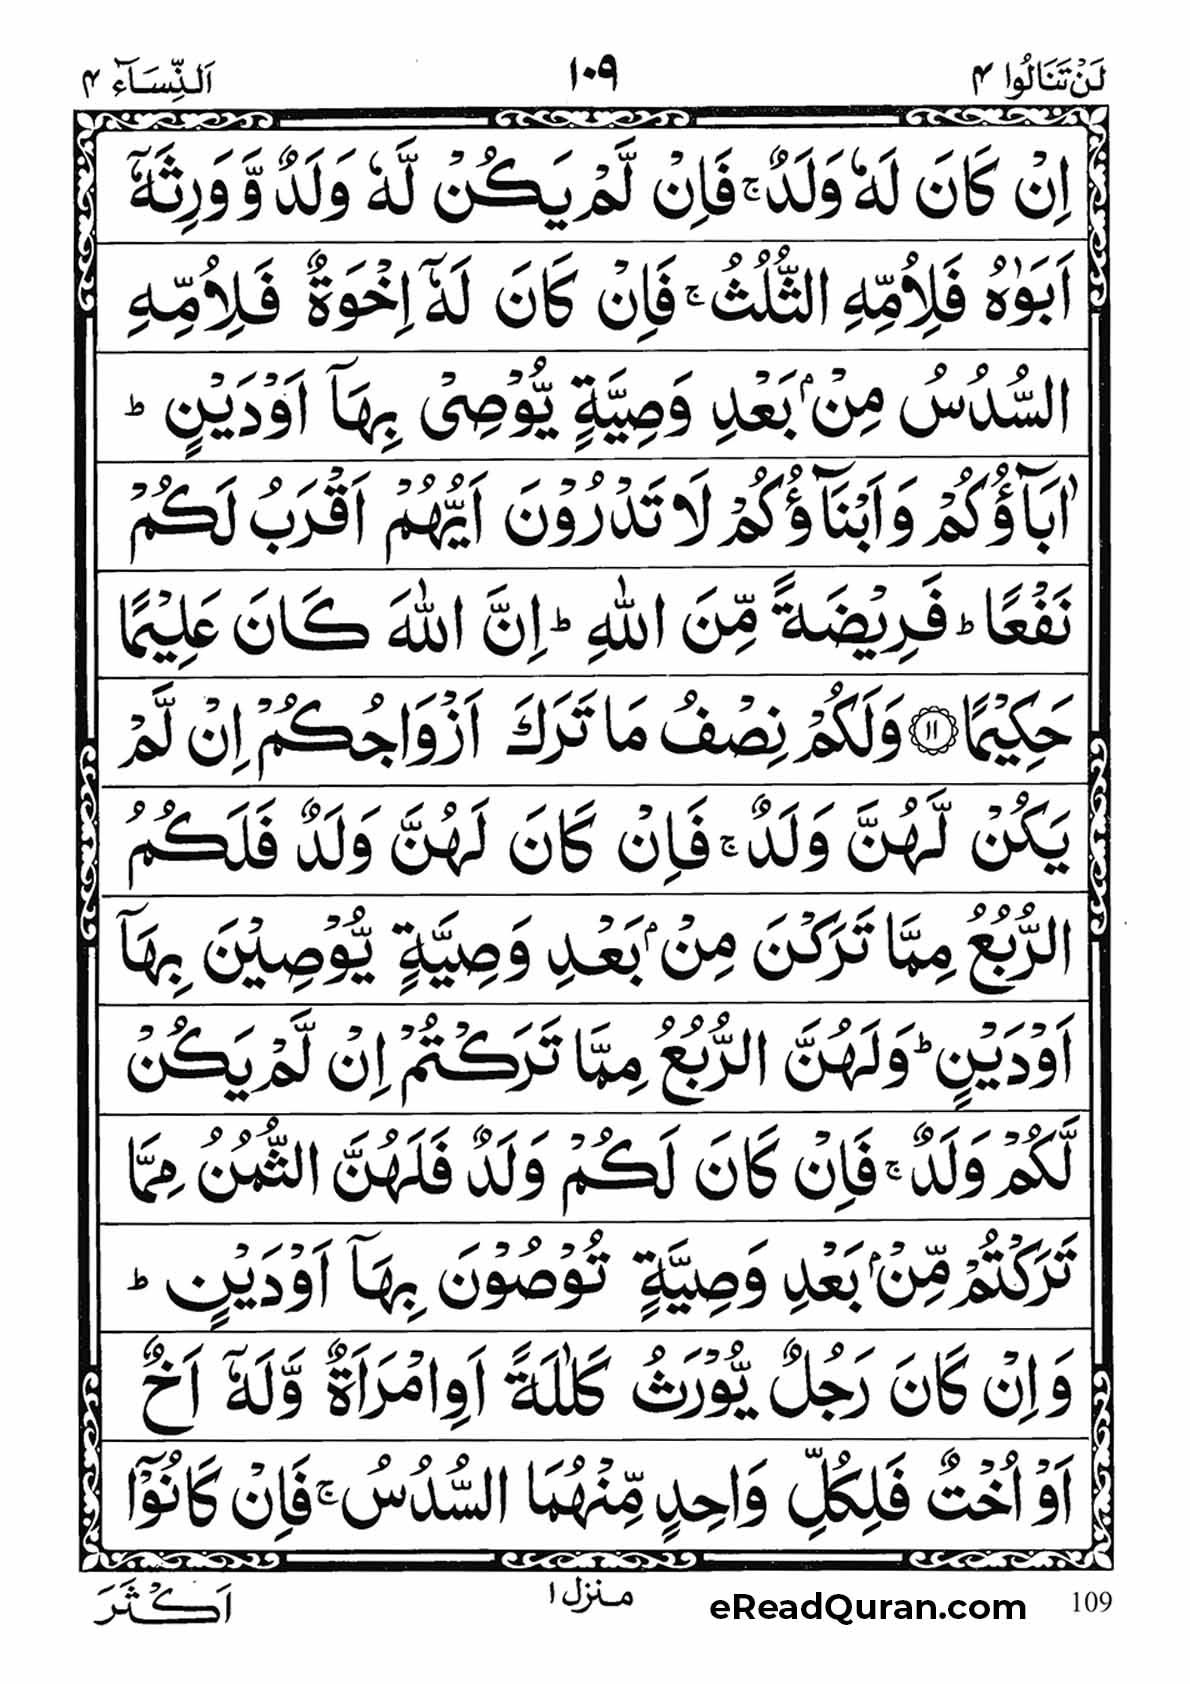 لَنْ تَنَالُوا ٤ ١٠٩ اَلنِّسَآء ٤
اِنْ كَانَ لَهٗ وَلَدٌ ۚ فَاِنْ لَّمْ يَكُنْ لَّهٗ وَلَدٌ وَّوَرِثَهٗۤ
اَبَوٰهُ فَلِاُمِّهِ الثُّلُثُ ۚ فَاِنْ كَانَ لَهٗۤ اِخْوَةٌ فَلِاُمِّهِ
السُّدُسُ مِنْۢ بَعْدِ وَصِيَّةٍ يُّوْصِىْ بِهَاۤ اَوْ دَيْنٍ ؕ
اٰبَآؤُكُمْ وَاَبْنَآؤُكُمْ لَا تَدْرُوْنَ اَيُّهُمْ اَقْرَبُ لَكُمْ
نَفْعًا ؕ فَرِيْضَةً مِّنَ اللّٰهِ ؕ اِنَّ اللّٰهَ كَانَ عَلِيْمًا
حَكِيْمًا ﴿۱۱﴾ وَلَكُمْ نِصْفُ مَا تَرَكَ اَزْوَاجُكُمْ اِنْ لَّمْ
يَكُنْ لَّهُنَّ وَلَدٌ ۚ فَاِنْ كَانَ لَهُنَّ وَلَدٌ فَلَكُمُ
الرُّبُعُ مِمَّا تَرَكْنَ مِنْۢ بَعْدِ وَصِيَّةٍ يُّوْصِيْنَ بِهَاۤ
اَوْ دَيْنٍ ؕ وَلَهُنَّ الرُّبُعُ مِمَّا تَرَكْتُمْ اِنْ لَّمْ يَكُنْ
لَّكُمْ وَلَدٌ ۚ فَاِنْ كَانَ لَكُمْ وَلَدٌ فَلَهُنَّ الثُّمُنُ مِمَّا
تَرَكْتُمْ مِّنْۢ بَعْدِ وَصِيَّةٍ تُوْصُوْنَ بِهَاۤ اَوْ دَيْنٍ ؕ
وَاِنْ كَانَ رَجُلٌ يُّوْرَثُ كَلٰلَةً اَوِ امْرَاَةٌ وَّلَهٗۤ اَخٌ
اَوْ اُخْتٌ فَلِكُلِّ وَاحِدٍ مِّنْهُمَا السُّدُسُ ۚ فَاِنْ كَانُوْۤا
اَكْثَرَ
منزل ١
eReadQuran.com
109